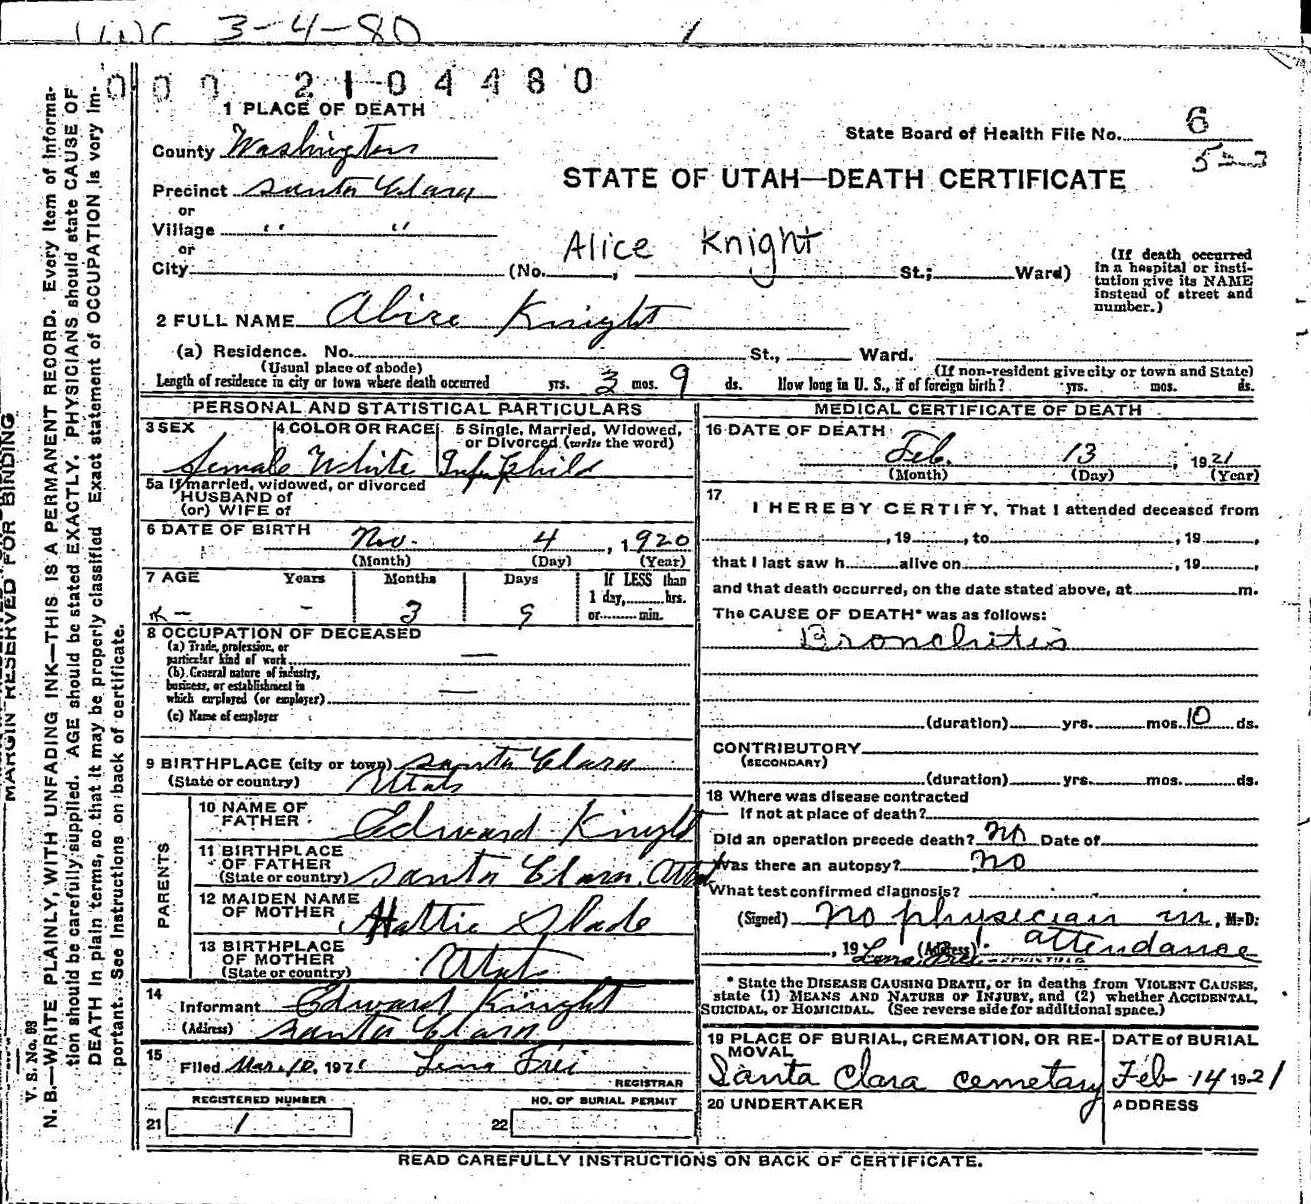 3-4-80
000 2104480
1 PLACE OF DEATH
County Washington
State Board of Health File No. 6
Precinct Santa Clara
STATE OF UTAH—DEATH CERTIFICATE
or
Village " "
or
Alice Knight
City (No. , St.; Ward)
(If death occurred in a hospital or institution give its NAME instead of street and number.)
2 FULL NAME Alice Knight
(a) Residence. No. St., Ward.
(Usual place of abode) (If non-resident give city or town and State)
Length of residence in city or town where death occurred yrs. 3 mos. 9 ds. How long in U. S., if of foreign birth? yrs. mos. ds.
PERSONAL AND STATISTICAL PARTICULARS
3 SEX 4 COLOR OR RACE 5 Single, Married, Widowed, or Divorced (write the word)
female White Child
5a If married, widowed, or divorced
HUSBAND of
(or) WIFE of
6 DATE OF BIRTH Nov. 4, 1920
(Month) (Day) (Year)
7 AGE Years Months Days If LESS than
1 day, hrs.
- 3 9 or min.
8 OCCUPATION OF DECEASED
(a) Trade, profession, or
particular kind of work —
(b) General nature of industry,
business, or establishment in
which employed (or employer) —
(c) Name of employer
9 BIRTHPLACE (city or town) Santa Clara
(State or country) Utah
PARENTS
10 NAME OF
FATHER Edward Knight
11 BIRTHPLACE
OF FATHER
(State or country) Santa Clara, Utah
12 MAIDEN NAME
OF MOTHER Hattie Slade
13 BIRTHPLACE
OF MOTHER
(State or country) Utah
14
Informant Edward Knight
(Address) Santa Clara
15
Filed Mar. 10, 1921 Lena Frei
REGISTRAR
REGISTERED NUMBER NO. OF BURIAL PERMIT
21 1 22
MEDICAL CERTIFICATE OF DEATH
16 DATE OF DEATH
Feb. 13, 1921
(Month) (Day) (Year)
17
I HEREBY CERTIFY, That I attended deceased from
, 19 , to , 19 ,
that I last saw h alive on , 19 ,
and that death occurred, on the date stated above, at m.
The CAUSE OF DEATH* was as follows:
Bronchitis
(duration) yrs. mos. 10 ds.
CONTRIBUTORY
(SECONDARY)
(duration) yrs. mos. ds.
18 Where was disease contracted
If not at place of death?
Did an operation precede death? No Date of
Was there an autopsy? No
What test confirmed diagnosis?
(Signed) No physician in, M.D.
, 19 Lena Frei (Address) attendance
* State the DISEASE CAUSING DEATH, or in deaths from VIOLENT CAUSES,
state (1) MEANS AND NATURE OF INJURY, and (2) whether ACCIDENTAL,
SUICIDAL, or HOMICIDAL. (See reverse side for additional space.)
19 PLACE OF BURIAL, CREMATION, OR RE- DATE of BURIAL
MOVAL
Santa Clara cemetary Feb 14 1921
20 UNDERTAKER ADDRESS
READ CAREFULLY INSTRUCTIONS ON BACK OF CERTIFICATE.
MARGIN RESERVED FOR BINDING
V. S. No. 83
N. B.—WRITE PLAINLY, WITH UNFADING INK—THIS IS A PERMANENT RECORD. Every item of informa-
tion should be carefully supplied. AGE should be stated EXACTLY. PHYSICIANS should state CAUSE OF
DEATH in plain terms, so that it may be properly classified Exact statement of OCCUPATION is very im-
portant. See Instructions on back of certificate.